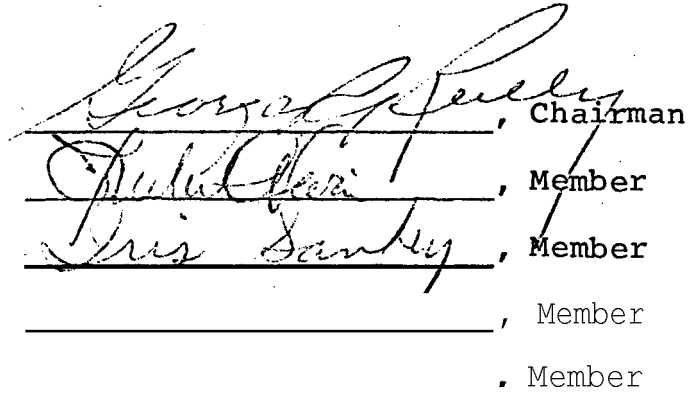 George R. Reilly, Chairman
, Member
Iris Sankey, Member
, Member
, Member